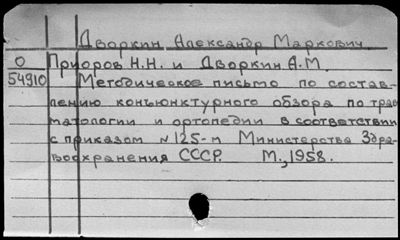 Дворкин, Александр Маркович
О Приоров Н.Н. и Дворкин А.М.
54910 Методическое письмо по состав-
лению конъюнктурного обзора по трав
матологии и ортопедии в соответствии
с приказом №125-м Министерства Здра-
воохранения СССР. М., 1958.